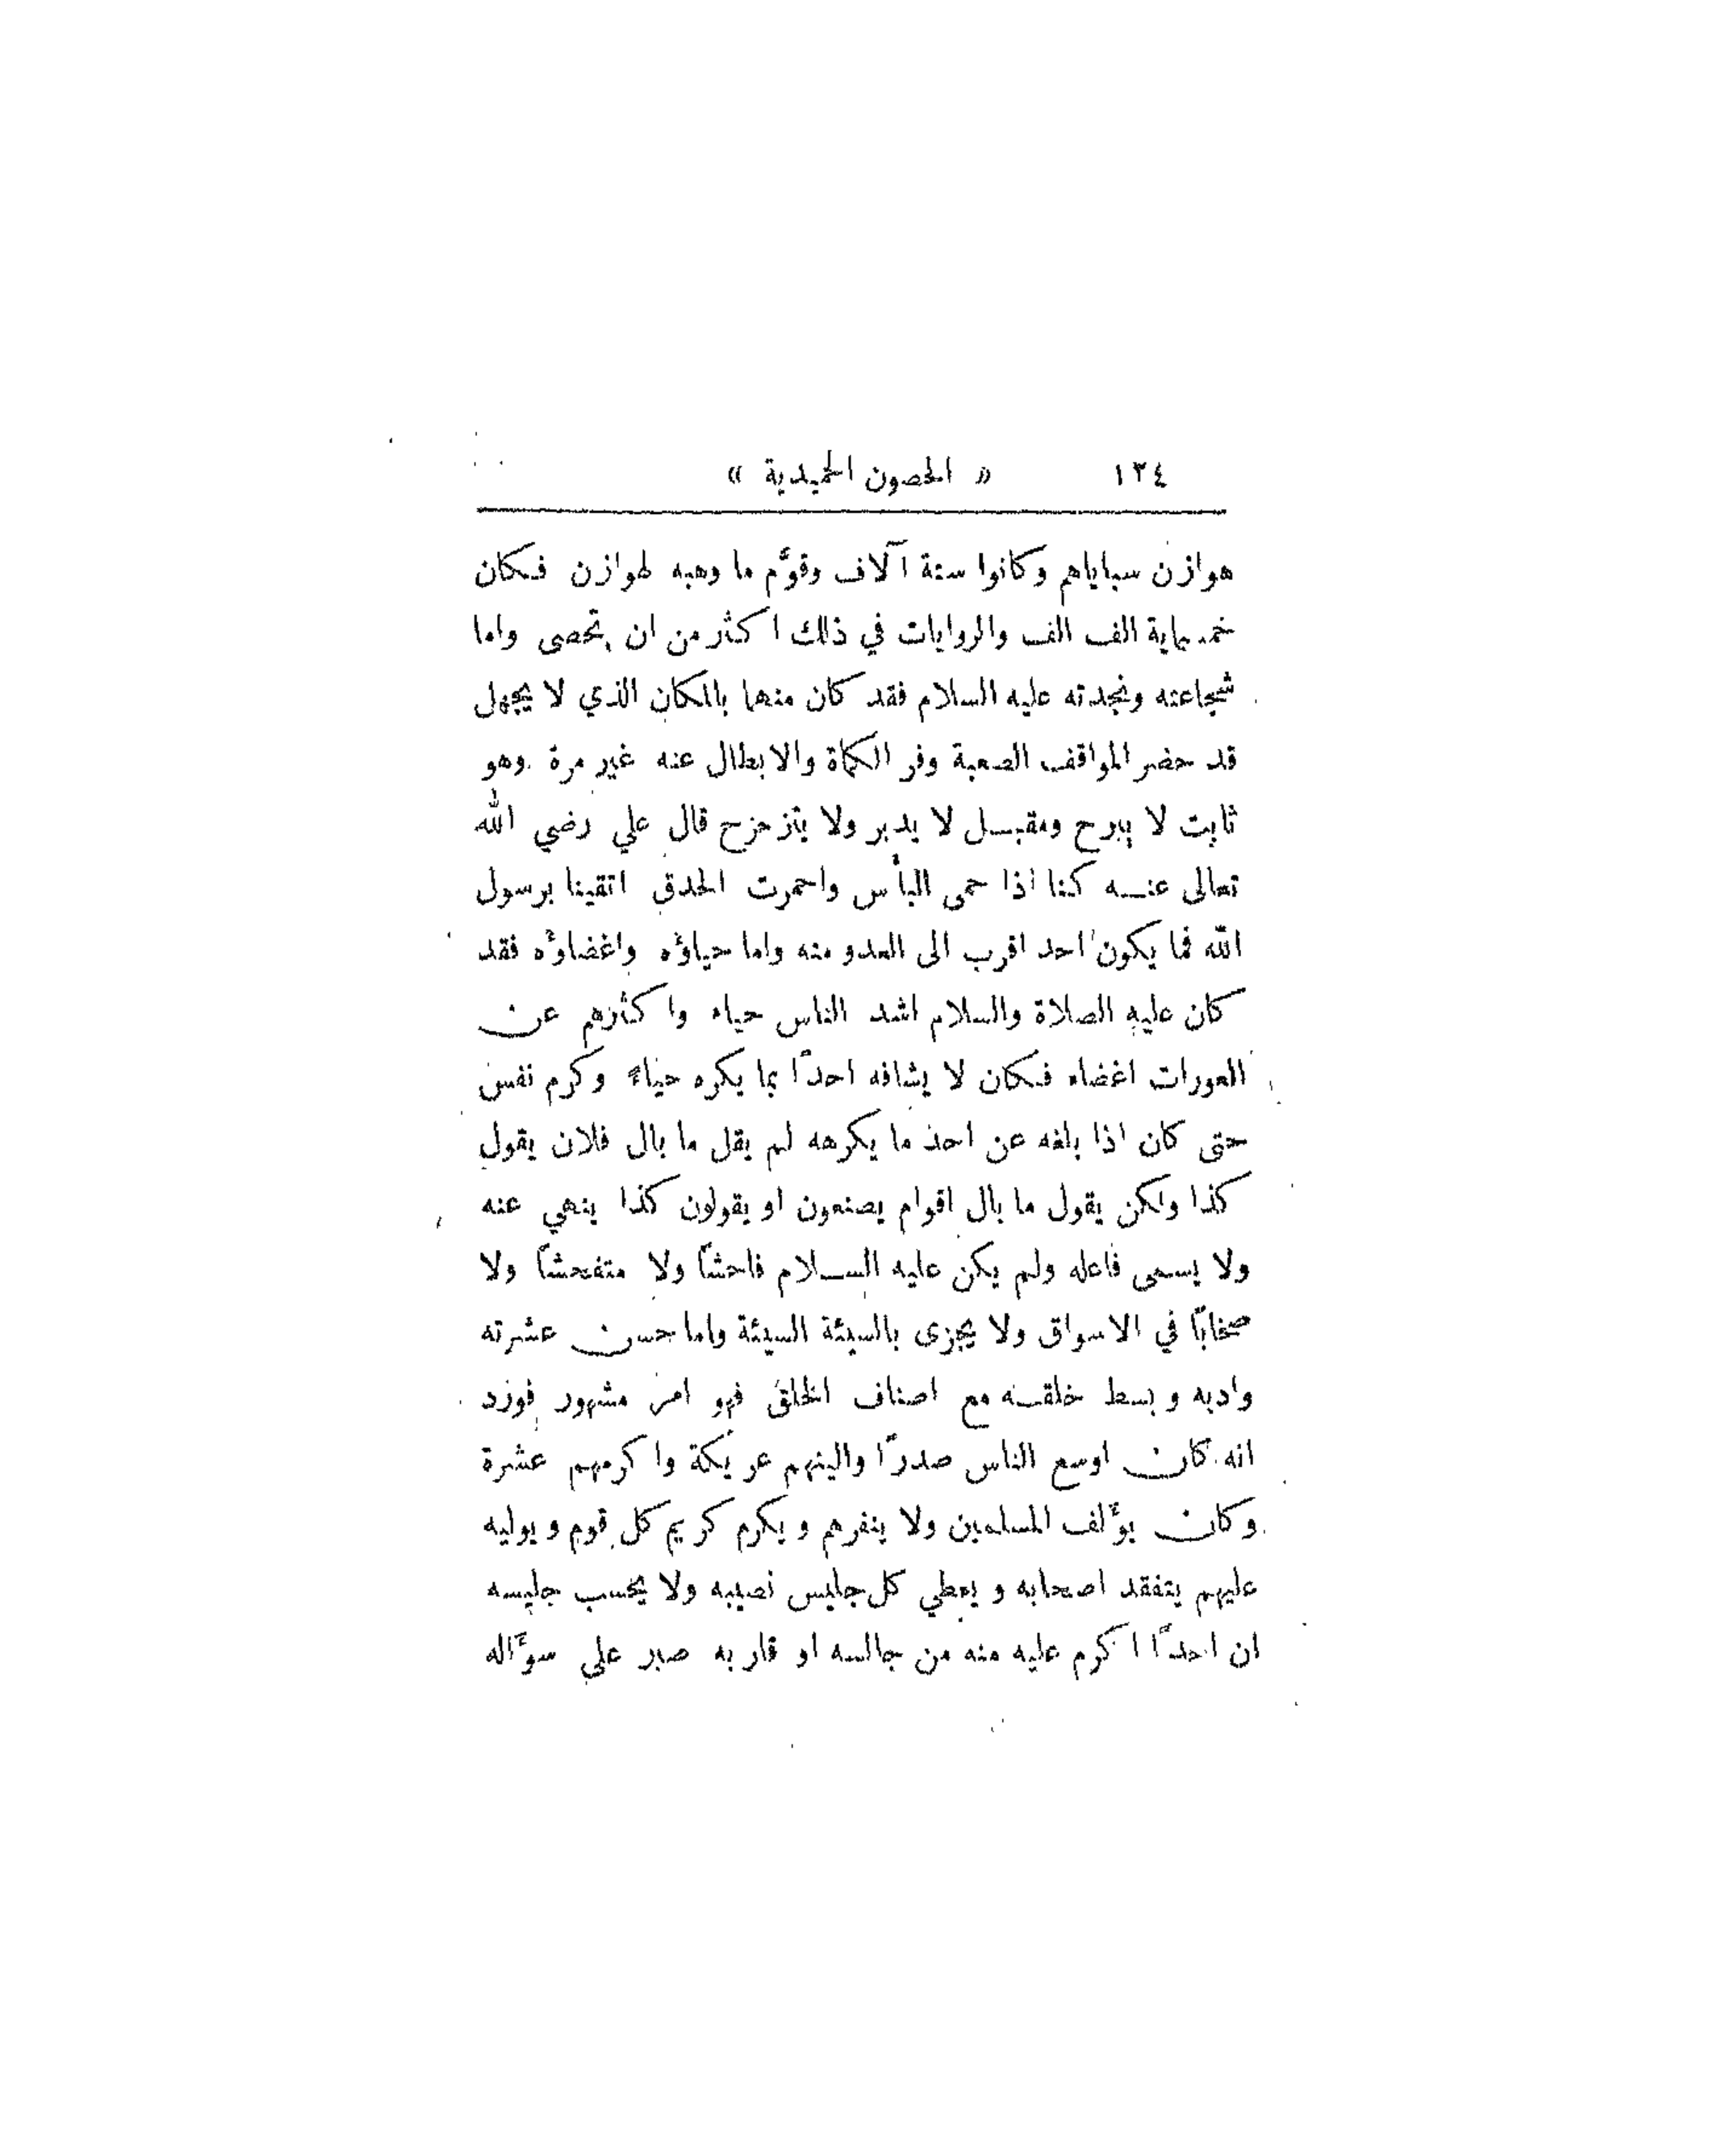 ١٣٤ « الحصون الحميدية »
هوازن سباياهم وكانوا ستة آلاف وقوَّم ما وهبه لهوازن فكان
خمسماية الف الف والروايات في ذلك اكثر من ان تحصى واما
شجاعته ونجدته عليه السلام فقد كان منهما بالمكان الذي لا يجهل
قد حضر المواقف الصعبة وفر الكماة والابطال عنه غير مرة وهو
ثابت لا يبرح ومقبل لا يدبر ولا يتزحزح قال علي رضي الله
تعالى عنه كنا اذا حمى البأس واحمرت الحدق اتقينا برسول
الله فما يكون احد اقرب الى العدو منه واما حياؤه واغضاؤه فقد
كان عليه الصلاة والسلام اشد الناس حياء واكثرهم عن
العورات اغضاء فكان لا يشافه احدًا بما يكره حياءً وكرم نفس
حتى كان اذا بلغه عن احد ما يكرهه لم يقل ما بال فلان يقول
كذا ولكن يقول ما بال اقوام يصنعون او يقولون كذا ينهي عنه
ولا يسمى فاعله ولم يكن عليه السلام فاحشًا ولا متفحشًا ولا
صخابًا في الاسواق ولا يجزى بالسيئة السيئة واما حسن عشرته
وادبه وبسط خلقه مع اصناف الخلق فهو امر مشهور فورد
انه كان اوسع الناس صدرًا والينهم عريكة واكرمهم عشرة
وكان يؤَلف المسلمين ولا ينفرهم ويكرم كريم كل قوم ويوليه
عليهم يتفقد اصحابه ويعطي كل جليس نصيبه ولا يحسب جليسه
ان احدًا اكرم عليه منه من جالسه او قاربه صبر على سؤَاله